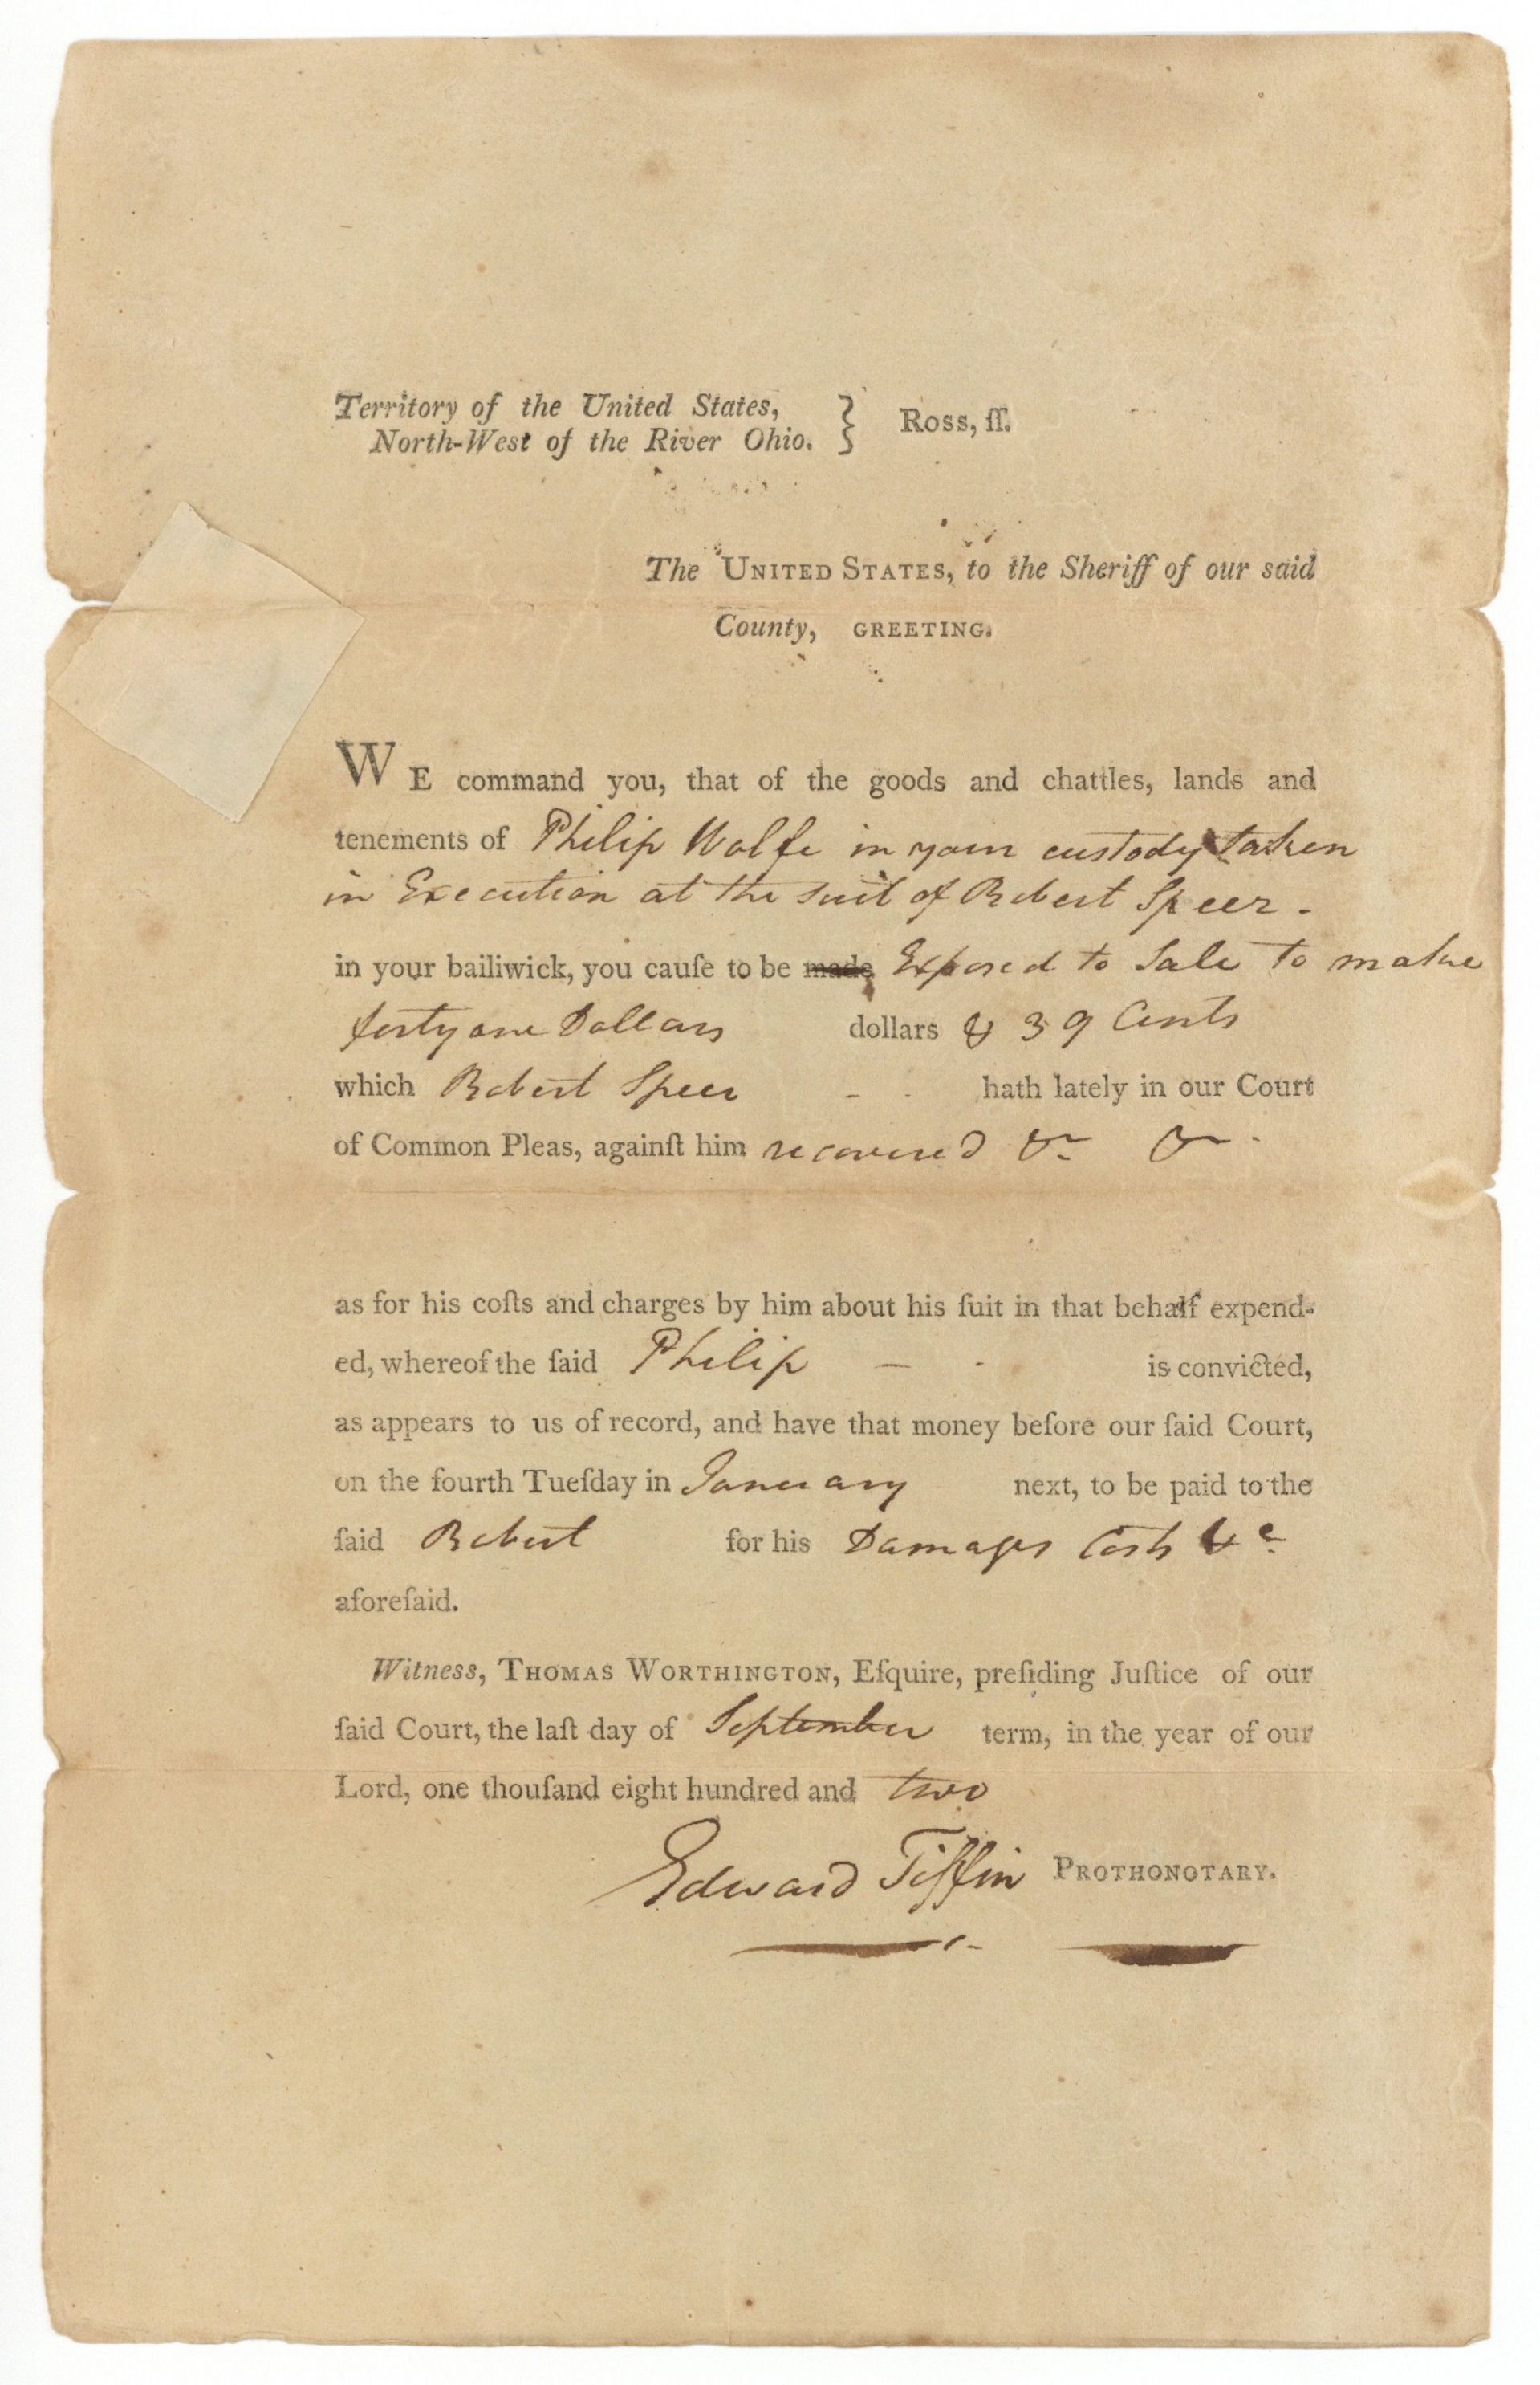 Territory of the United States,
North-West of the River Ohio. } Ross, ſſ.
The UNITED STATES, to the Sheriff of our said
County, GREETING.
WE command you, that of the goods and chattles, lands and
tenements of Philip Wolfe in your custody taken
in Execution at the suit of Robert Speer -
in your bailiwick, you cauſe to be made Exposed to Sale to make
forty one Dollars dollars & 39 Cents
which Robert Speer - - hath lately in our Court
of Common Pleas, againſt him recovered &c &c -
as for his coſts and charges by him about his ſuit in that behalf expend-
ed, whereof the ſaid Philip - - is convicted,
as appears to us of record, and have that money before our ſaid Court,
on the fourth Tueſday in January next, to be paid to the
ſaid Robert for his Damages Costs &c
aforeſaid.
Witness, THOMAS WORTHINGTON, Eſquire, preſiding Juſtice of our
ſaid Court, the laſt day of September term, in the year of our
Lord, one thouſand eight hundred and two
Edward Tiffin PROTHONOTARY.